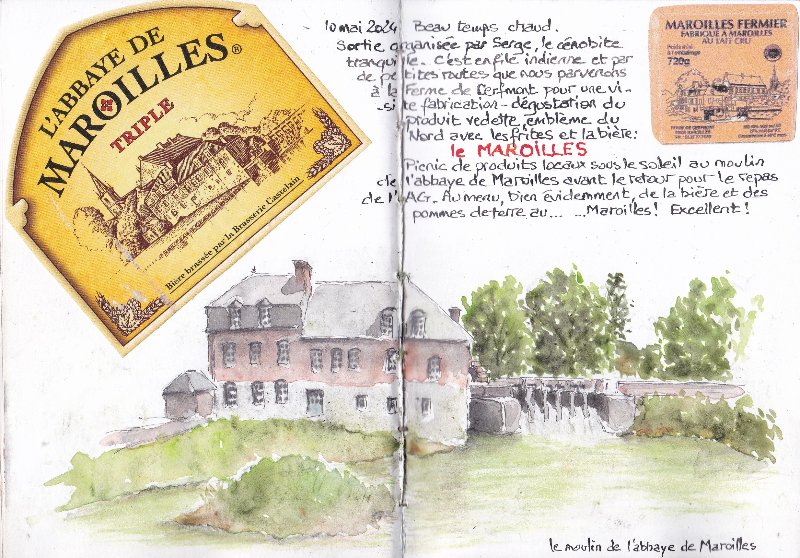 L'ABBAYE DE
MAROILLES®
TRIPLE
Bière brassée par la Brasserie Castelain
10 mai 2024 Beau temps chaud.
Sortie organisée par Serge, le cénobite
tranquille. C'est en file indienne et par
de petites routes que nous parvenons
à la Ferme de Cerfmont pour une vi-
site fabrication-dégustation du
produit vedette, emblème du
Nord avec les frites et la bière:
le MAROILLES
Picnic de produits locaux sous le soleil au moulin
de l'abbaye de Maroilles avant le retour pour le repas
de l'AG. Au menu, bien évidemment, de la bière et des
pommes de terre au... ...Maroilles! Excellent!
MAROILLES FERMIER
FABRIQUÉ A MAROILLES
AU LAIT CRU
Poids net
à l'emballage
720g
le moulin de l'abbaye de Maroilles